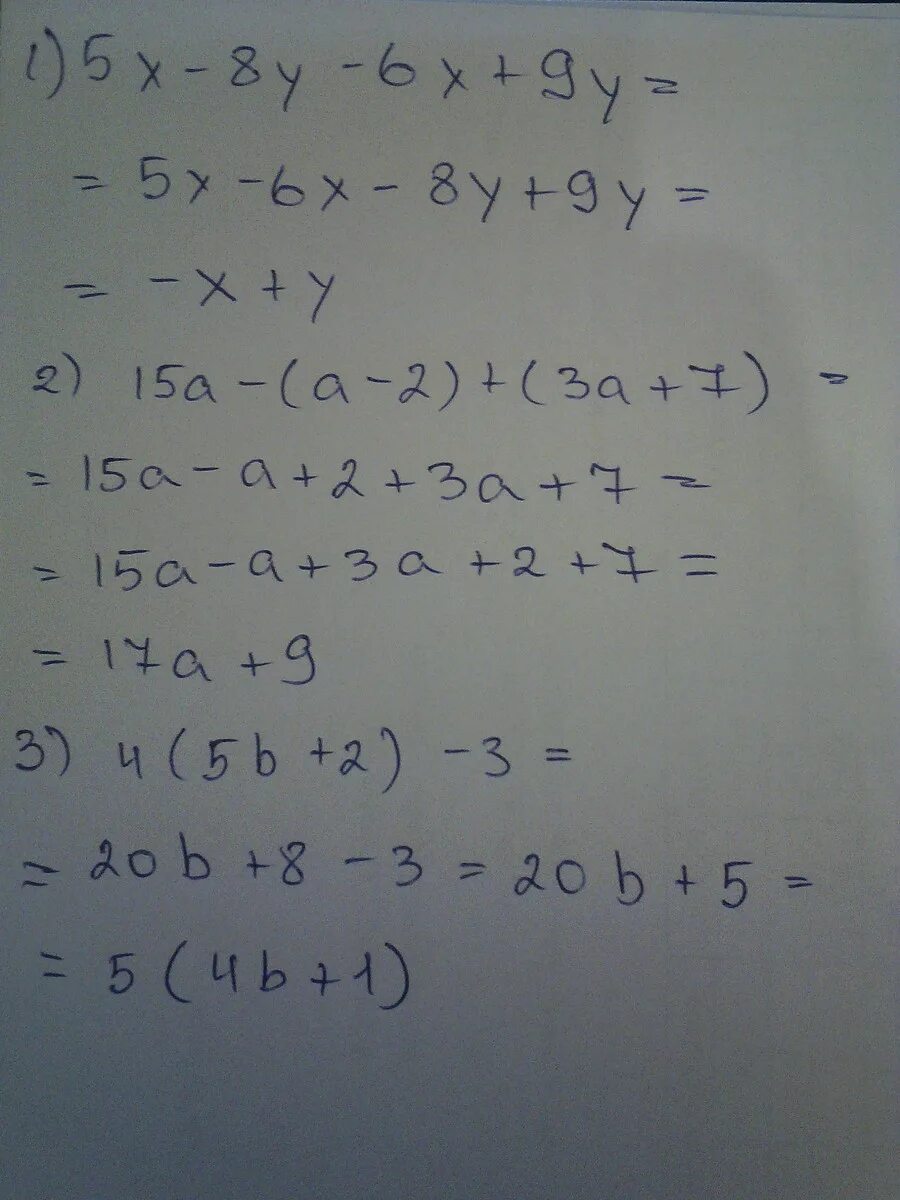 1) 5x - 8y - 6x + 9y =
= 5x - 6x - 8y + 9y =
= -x + y
2) 15a - (a - 2) + (3a + 7) =
= 15a - a + 2 + 3a + 7 =
= 15a - a + 3a + 2 + 7 =
= 17a + 9
3) 4(5b + 2) - 3 =
= 20b + 8 - 3 = 20b + 5 =
= 5(4b + 1)